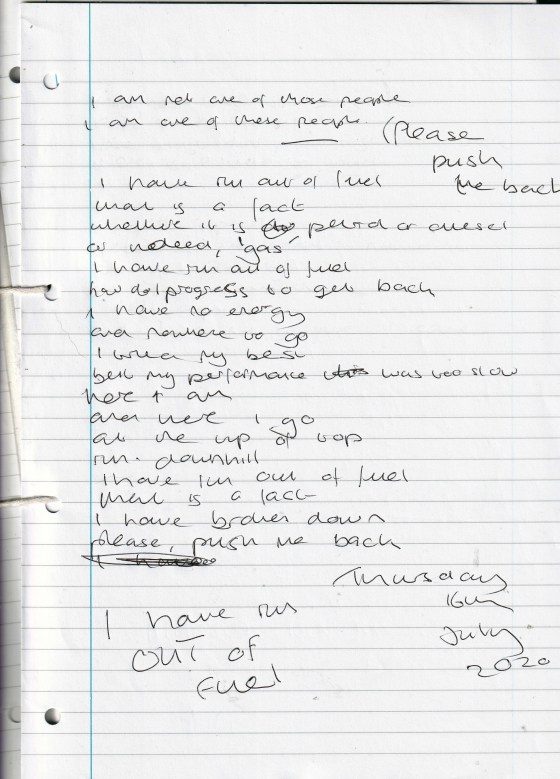 I am not one of those people
I am one of these people
(Please
push
me back
I have run out of fuel
that is a fact
whether it is petrol or diesel
or indeed, 'gas'
I have run out of fuel
how do I progress to get back
I have no energy
and nowhere to go
I tried my best
but my performance was too slow
here I am
and here I go
at the top
run downhill
I have run out of fuel
that is a fact
I have broken down
please, push me back
Thursday
16th
July
2020
I have run
OUT of
fuel